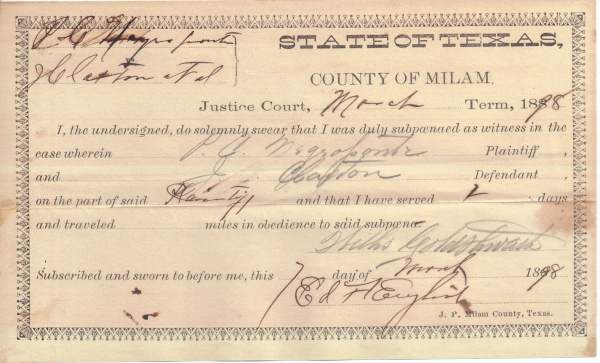 STATE OF TEXAS,
J Claxton et al
COUNTY OF MILAM.
Justice Court, March Term, 1898
I, the undersigned, do solemnly swear that I was duly subpœnaed as witness in the
case wherein P. J. Plaintiff ,
and Claxton Defendant ,
on the part of said Plaintiff and that I have served 2 days
and traveled miles in obedience to said subpœna.
Subscribed and sworn to before me, this day of March 1898
Ed H English
J. P. Milam County, Texas.